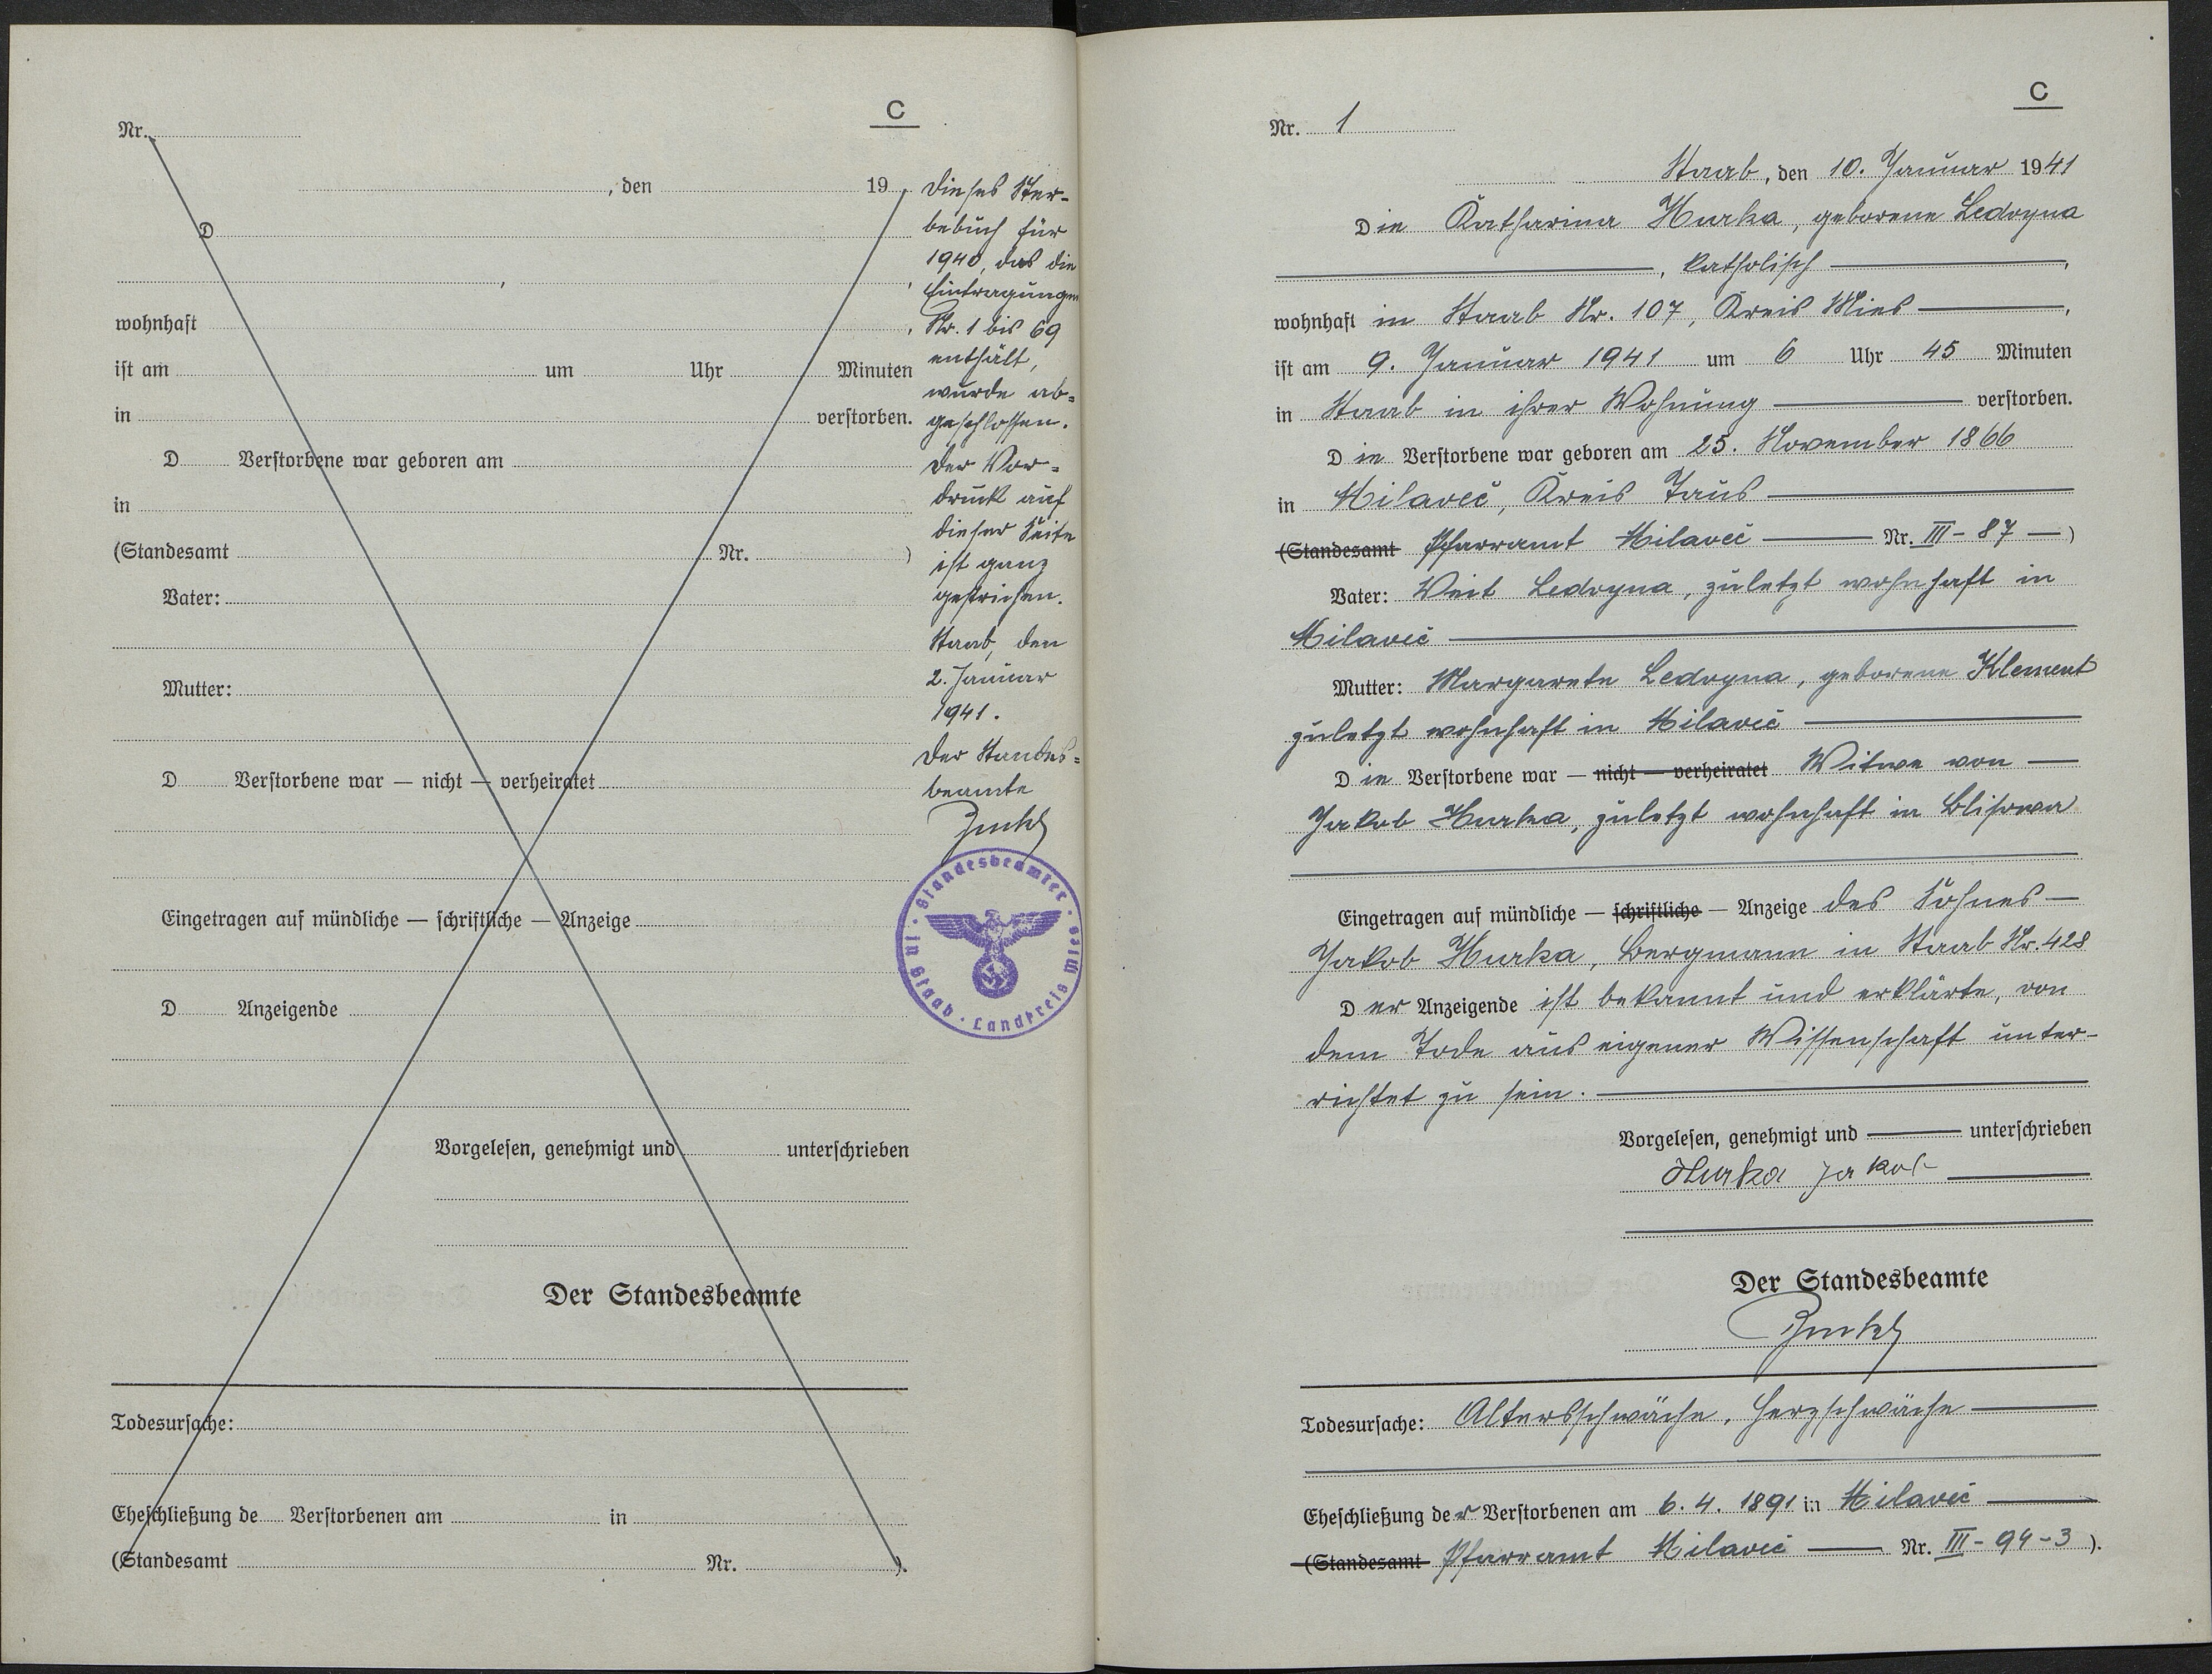 C
Nr.
, den 19
D
,
wohnhaft ,
ist am um Uhr Minuten
in verstorben.
D Verstorbene war geboren am
in
(Standesamt Nr. )
Vater:
Mutter:
D Verstorbene war — nicht — verheiratet
Eingetragen auf mündliche — schriftliche — Anzeige
D Anzeigende
Vorgelesen, genehmigt und unterschrieben
Der Standesbeamte
Todesursache:
Eheschließung de Verstorbenen am in
(Standesamt Nr. ).
Dieses Ster-
bebuch für
1940, das die
Eintragungen
Nr. 1 bis 69
enthält,
wurde ab=
geschlossen.
Der Vor=
druck auf
dieser Seite
ist ganz
gestrichen.
Staab, den
2. Januar
1941.
Der Standes=
beamte
Standesbeamter · in Staab · Landkreis Mies ·
C
Nr. 1
Staab, den 10. Januar 1941
Die Katharina Hurka, geborene Ledvyna
, katholisch ,
wohnhaft in Staab Nr. 107, Kreis Mies ,
ist am 9. Januar 1941 um 6 Uhr 45 Minuten
in Staab in ihrer Wohnung verstorben.
Die Verstorbene war geboren am 25. November 1866
in Milaveč, Kreis Taus
(Standesamt Pfarramt Milaveč Nr. III - 87 — )
Vater: Veit Ledvyna, zuletzt wohnhaft in
Milaveč
Mutter: Margarete Ledvyna, geborene Klement
zuletzt wohnhaft in Milaveč
Die Verstorbene war — nicht — verheiratet Witwe von —
Jakob Hurka, zuletzt wohnhaft in Blisowa
Eingetragen auf mündliche — schriftliche — Anzeige des Sohnes —
Jakob Hurka, Bergmann in Staab Nr. 428
Der Anzeigende ist bekannt und erklärte, von
dem Tode aus eigener Wissenschaft unter-
richtet zu sein.
Vorgelesen, genehmigt und — unterschrieben
Hurka Jakob
Der Standesbeamte
Todesursache: Altersschwäche, Herzschwäche
Eheschließung der Verstorbenen am 6. 4. 1891 in Milaveč
(Standesamt Pfarramt Milaveč Nr. III - 94 - 3 ).